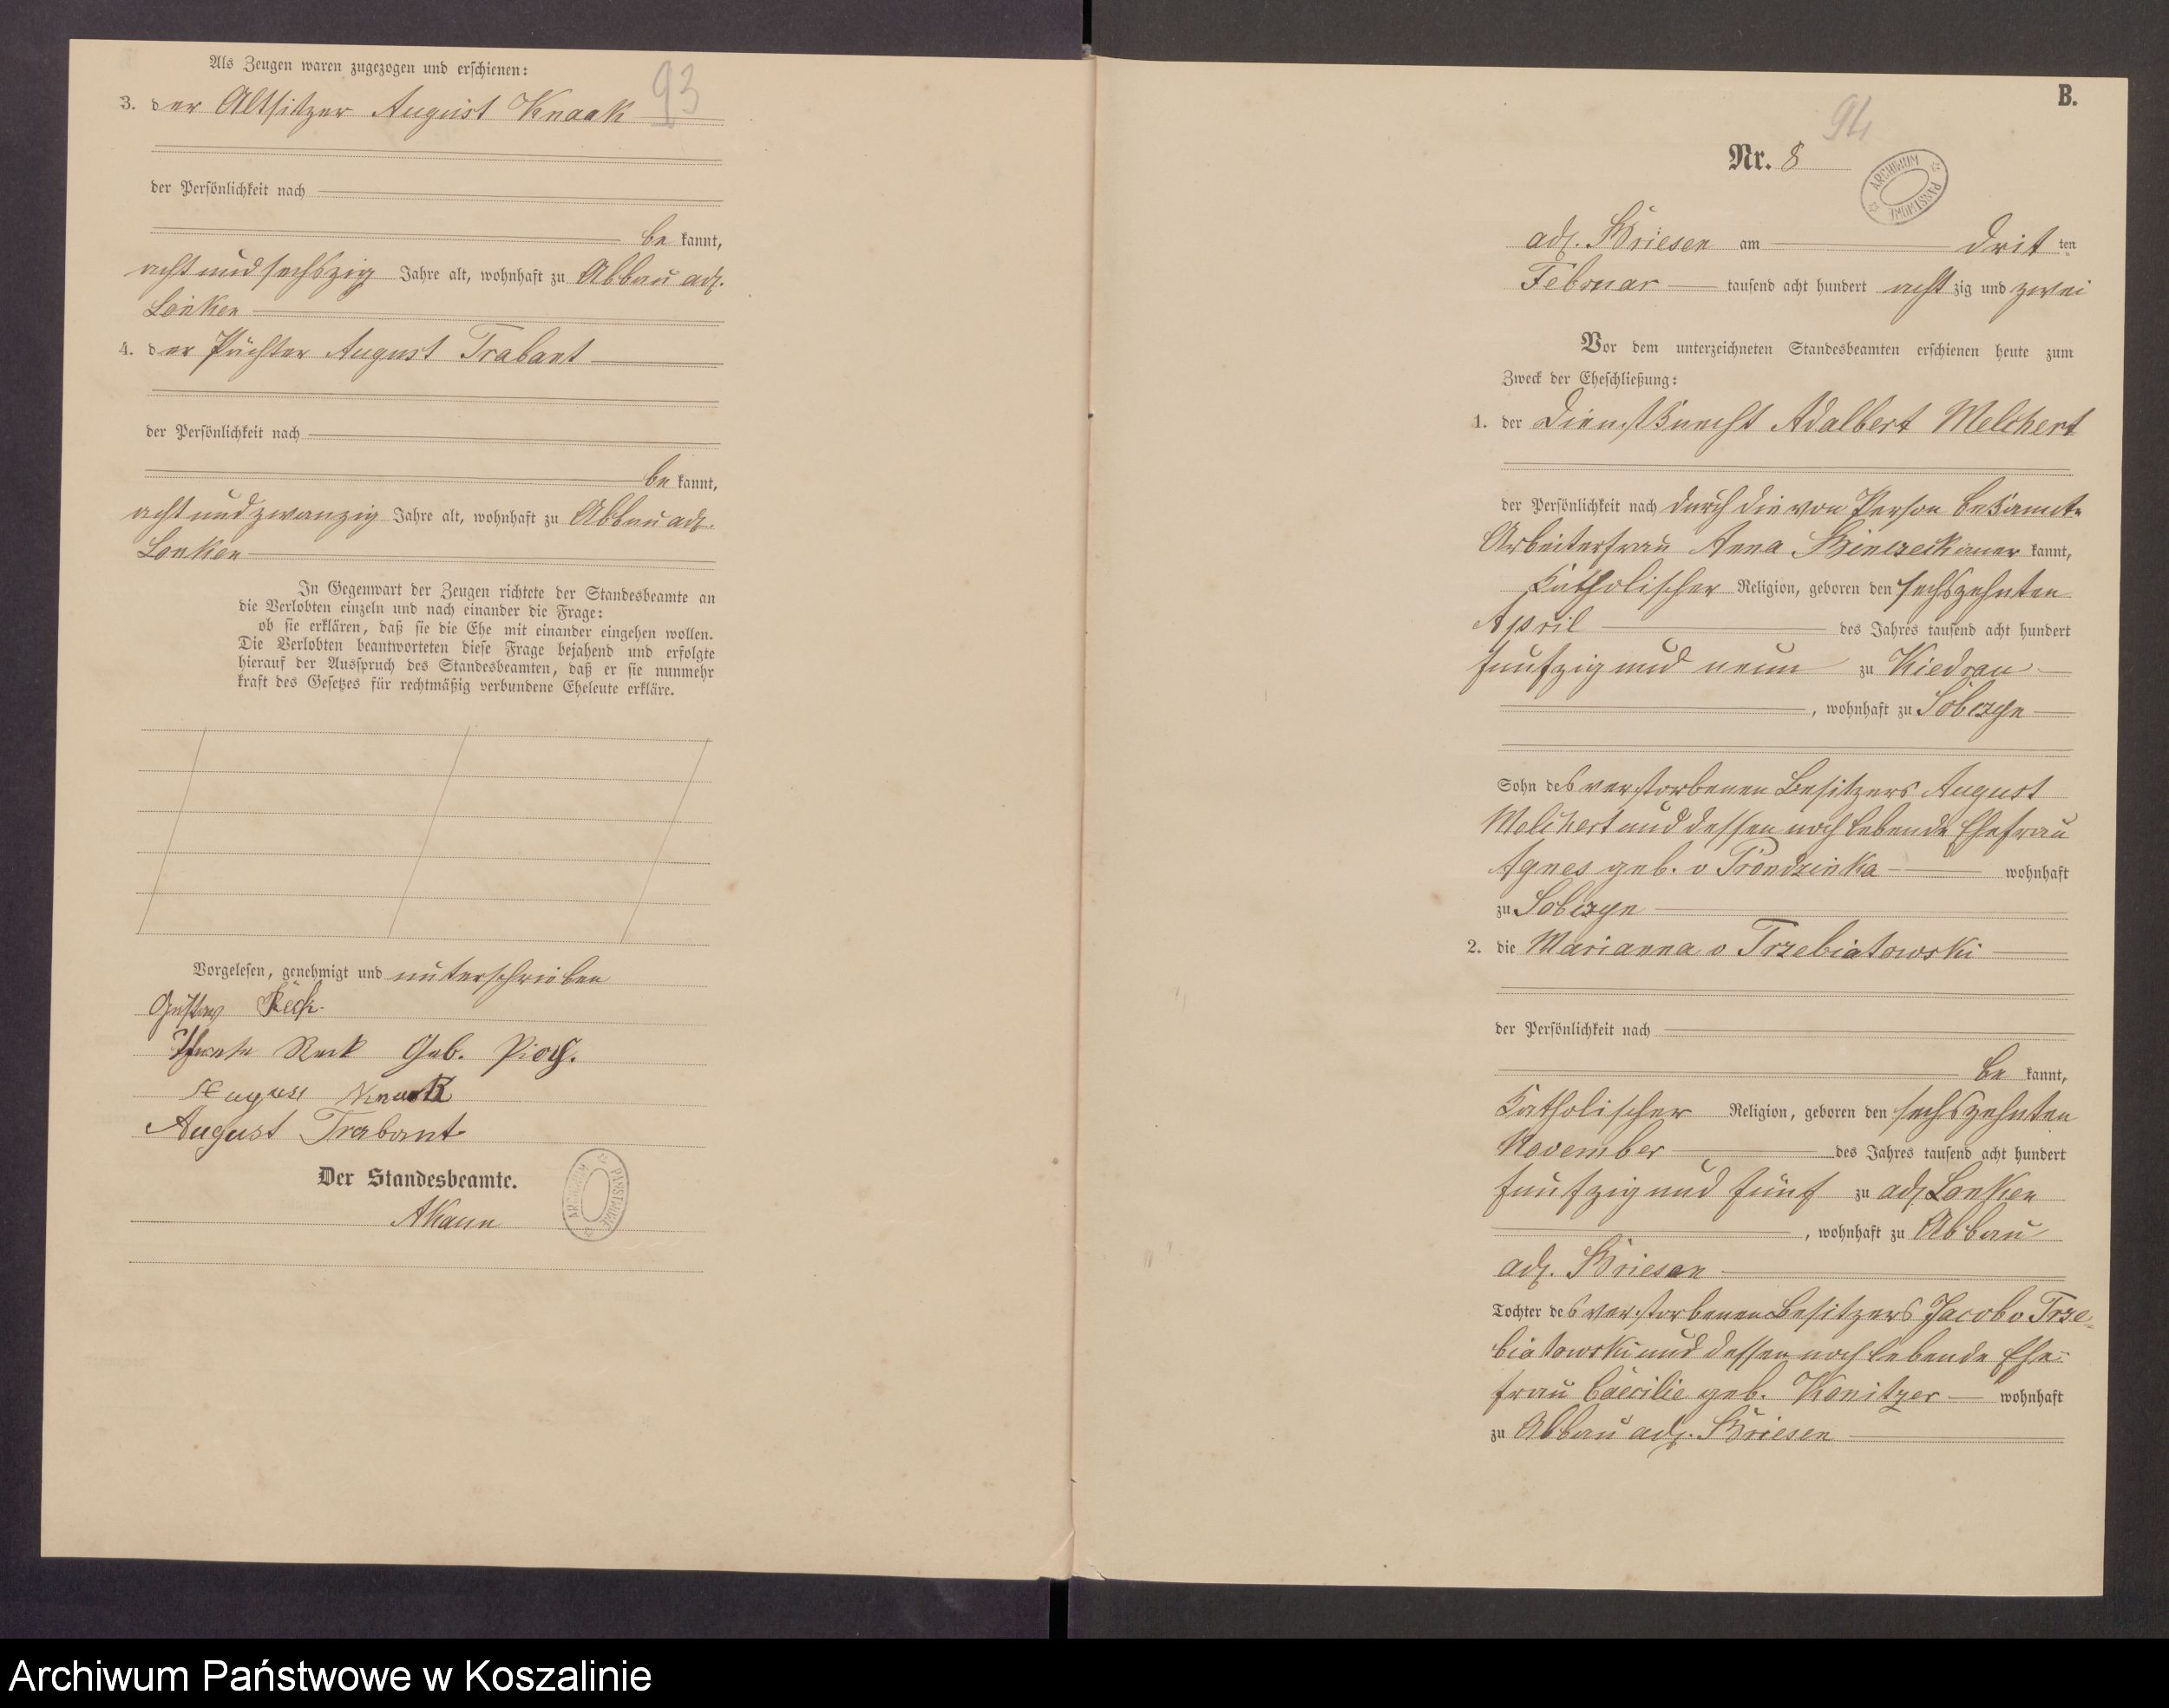 Als Zeugen waren zugezogen und erschienen:
93
3. der Altsitzer August Knaak
der Persönlichkeit nach
be kannt,
acht und sechszig Jahre alt, wohnhaft zu Abbau adl.
Lonken
4. der Pächter August Trabant
der Persönlichkeit nach
be kannt,
acht und zwanzig Jahre alt, wohnhaft zu Abbau adl.
Lonken
In Gegenwart der Zeugen richtete der Standesbeamte an
die Verlobten einzeln und nach einander die Frage:
ob sie erklären, daß sie die Ehe mit einander eingehen wollen.
Die Verlobten beantworteten diese Frage bejahend und erfolgte
hierauf der Ausspruch des Standesbeamten, daß er sie nunmehr
kraft des Gesetzes für rechtmäßig verbundene Eheleute erkläre.
Vorgelesen, genehmigt und unterschrieben
Gustav Reck
Reck Geb.
August Knaak
August Trabant
Der Standesbeamte.
ARCHIWUM PAŃSTWOWE
B.
94
Nr. 8
ARCHIWUM PAŃSTWOWE
adl. Briesen am drit ten
Februar tausend acht hundert acht zig und zwei
Vor dem unterzeichneten Standesbeamten erschienen heute zum
Zweck der Eheschließung:
1. der Dienstknecht Adalbert Melchert
der Persönlichkeit nach durch die von Person bekannte
Arbeiterfrau Anna kannt,
katholischer Religion, geboren den sechszehnten
April des Jahres tausend acht hundert
fünfzig und neun zu Kiedrau
, wohnhaft zu Sobczyn
Sohn des verstorbenen Besitzers August
Melchert und dessen noch lebende Ehefrau
Agnes geb. v Prondzinka wohnhaft
zu Sobczyn
2. die Marianna v Trzebiatowski
der Persönlichkeit nach
be kannt,
katholischer Religion, geboren den sechszehnten
November des Jahres tausend acht hundert
fünfzig und fünf zu adl. Lonken
, wohnhaft zu Abbau
adl. Briesen
Tochter des verstorbenen Besitzers Jacob v Trze-
biatowski und dessen noch lebende Ehe-
frau Caecilie geb. Konitzer wohnhaft
zu Abbau adl. Briesen
Archiwum Państwowe w Koszalinie